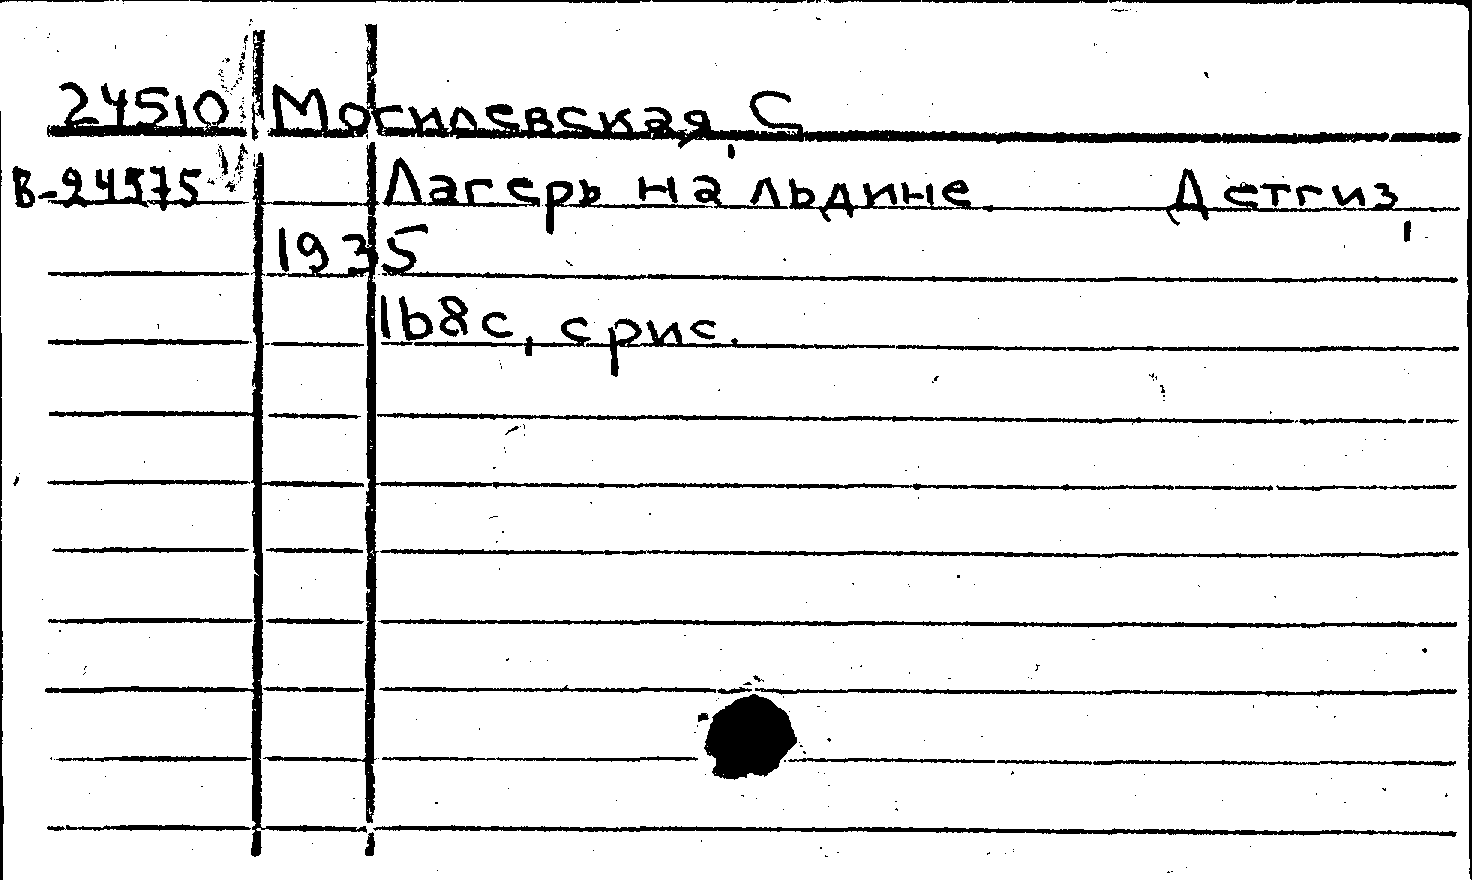 24510 Могилевская, С
В-24575 Лагерь на льдине. Детгиз,
1935
168с, с рис.